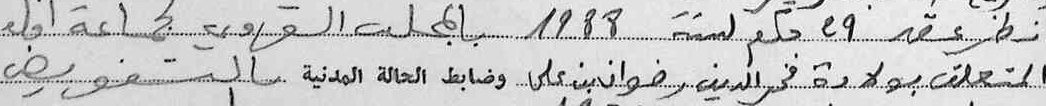 نظر عقد 29 حكم لسنة 1988 بالمجلس القروي لجماعة
المتعلق بولادة فخر الدين رضوان بن علي وضابط الحالة المدنية بالتفويض